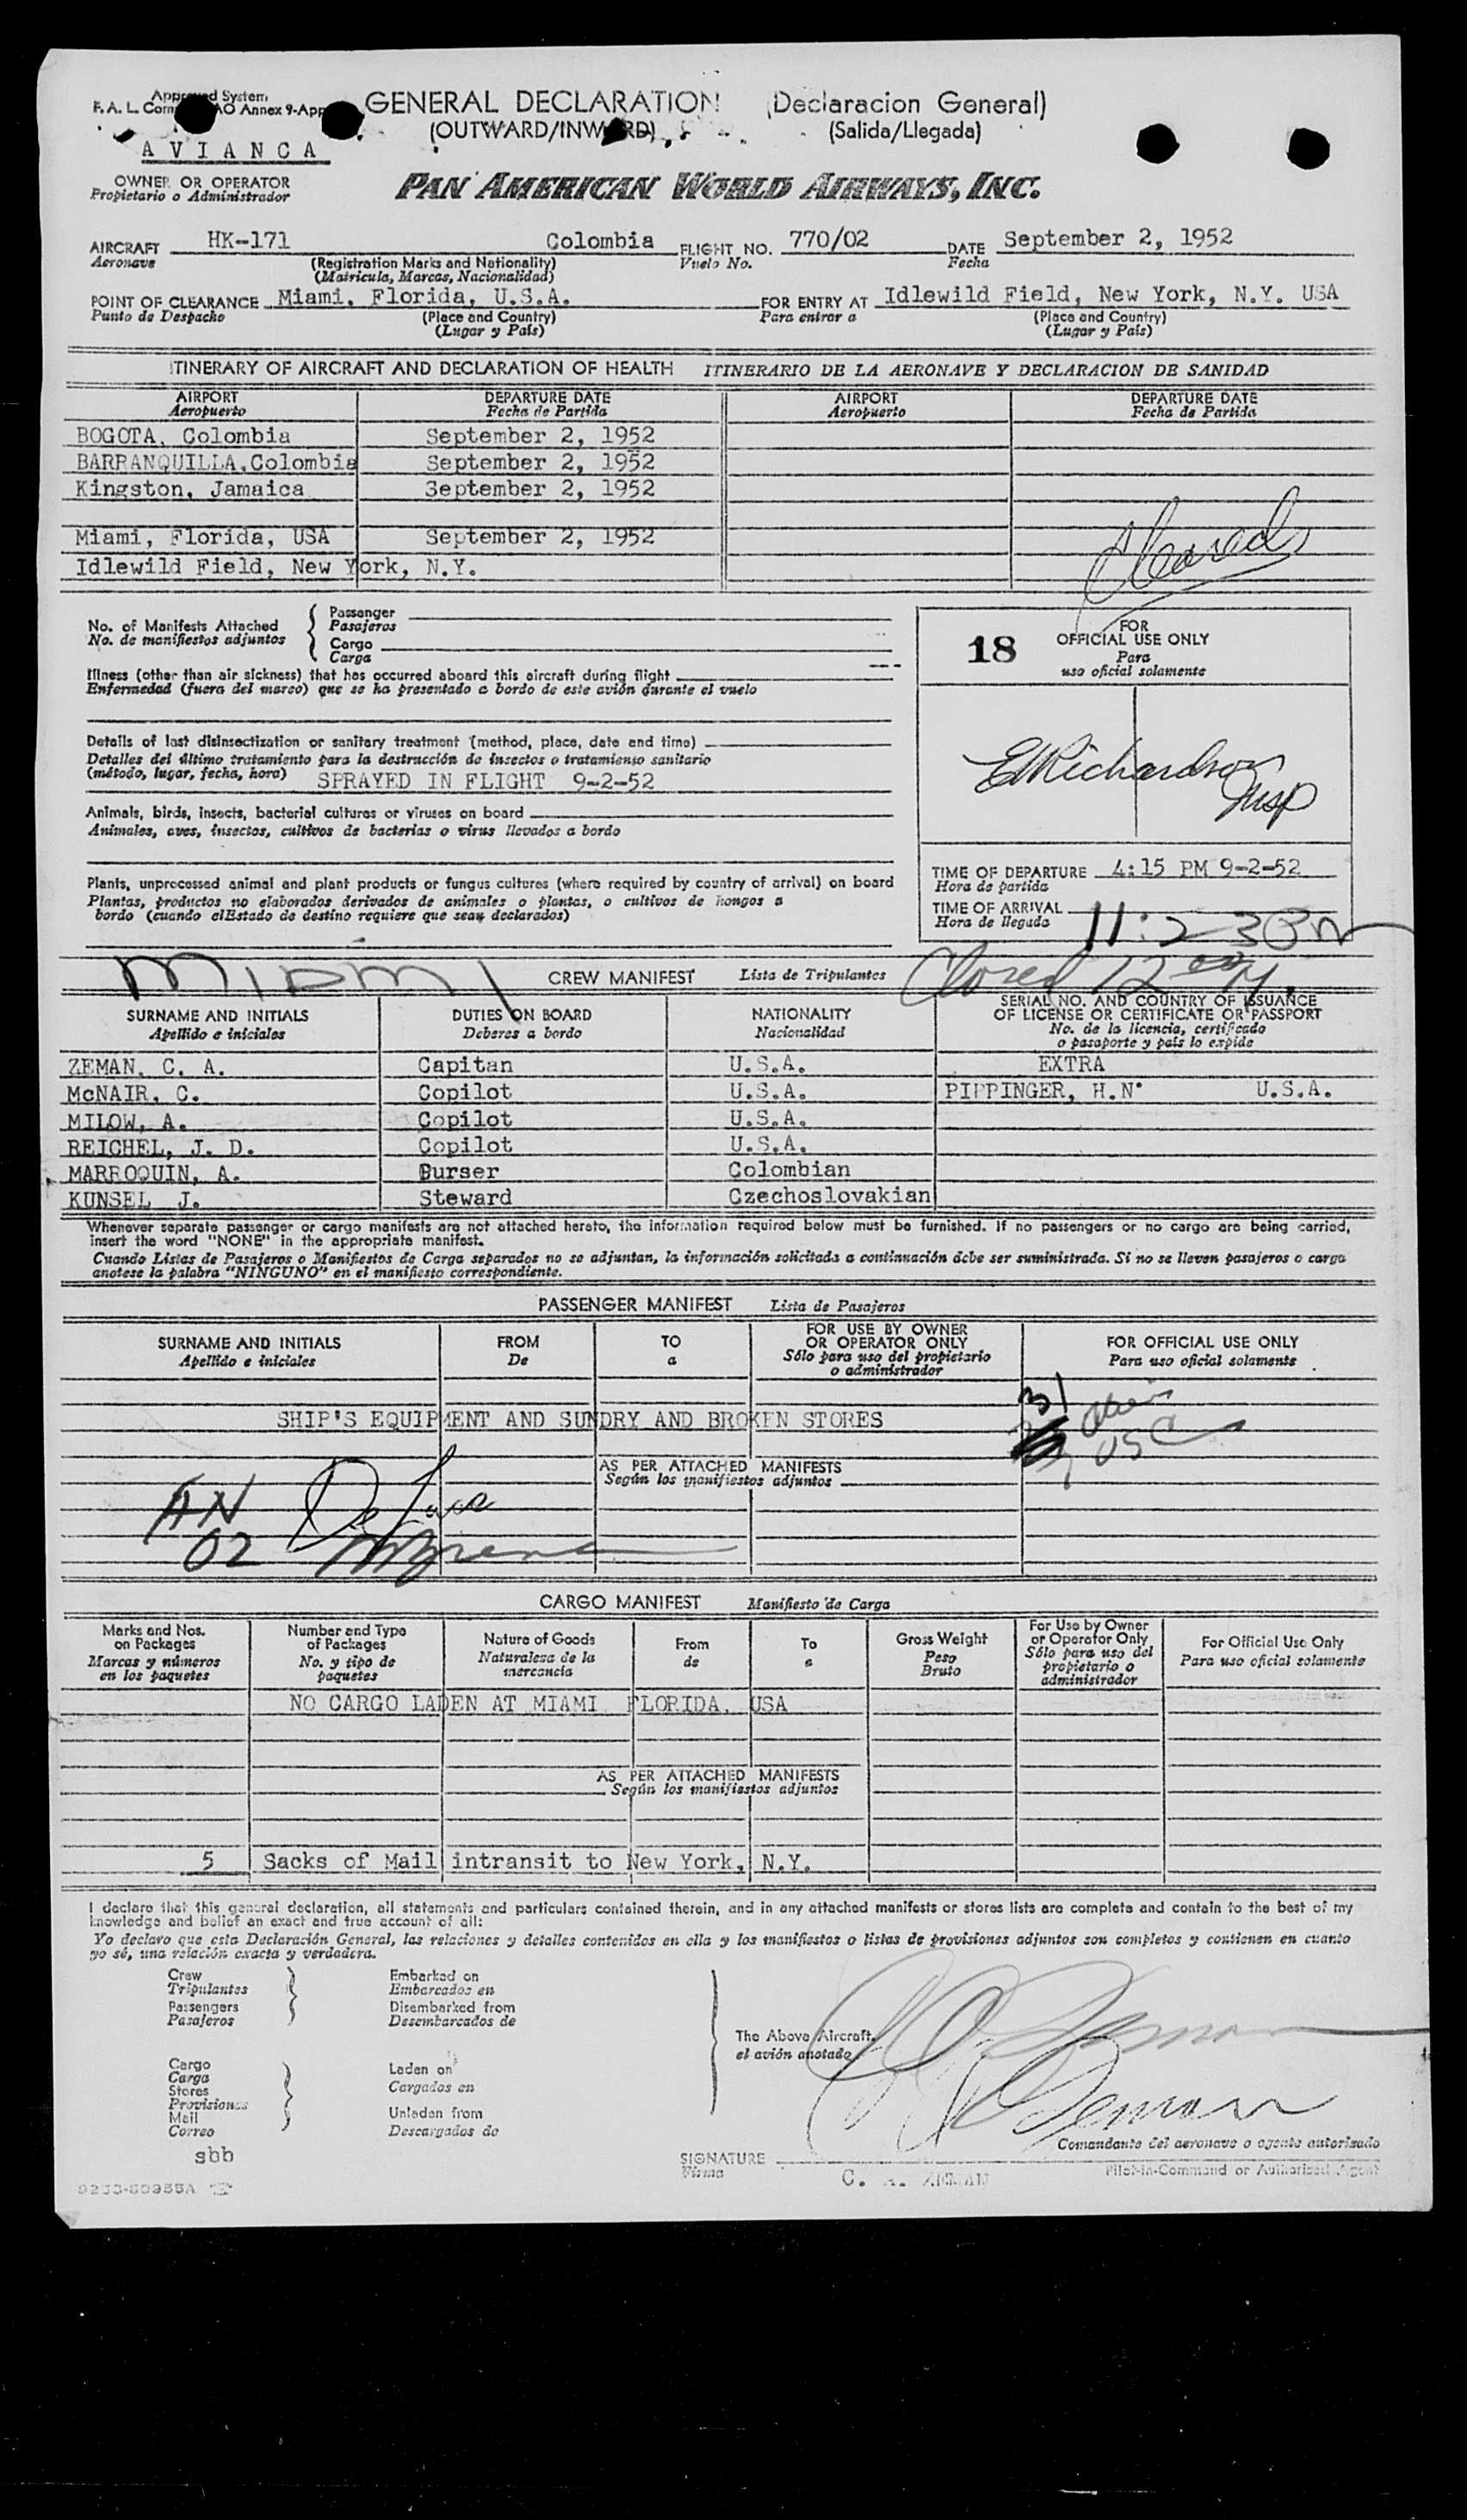 Approved System
F. A. L. Com AO Annex 9-App
GENERAL DECLARATION (Declaracion General)
(OUTWARD/INWARD) (Salida/Llegada)
AVIANCA
OWNER OR OPERATOR
Propietario o Administrador
PAN AMERICAN WORLD AIRWAYS, INC.
AIRCRAFT HK-171 Colombia FLIGHT NO. 770/02 DATE September 2, 1952
Aeronave (Registration Marks and Nationality) Vuelo No. Fecha
(Matricula, Marcas, Nacionalidad)
POINT OF CLEARANCE Miami, Florida, U.S.A. FOR ENTRY AT Idlewild Field, New York, N.Y. USA
Punto de Despacho (Place and Country) Para entrar a (Place and Country)
(Lugar y País) (Lugar y País)
ITINERARY OF AIRCRAFT AND DECLARATION OF HEALTH ITINERARIO DE LA AERONAVE Y DECLARACION DE SANIDAD
AIRPORT DEPARTURE DATE AIRPORT DEPARTURE DATE
Aeropuerto Fecha de Partida Aeropuerto Fecha de Partida
BOGOTA, Colombia September 2, 1952
BARRANQUILLA,Colombia September 2, 1952
Kingston, Jamaica September 2, 1952
Miami, Florida, USA September 2, 1952
Idlewild Field, New York, N.Y.
Cleared
No. of Manifests Attached
No. de manifiestos adjuntos
Passenger
Pasajeros
Cargo
Carga
18
FOR
OFFICIAL USE ONLY
Para
uso oficial solamente
Illness (other than air sickness) that has occurred aboard this aircraft during flight ---
Enfermedad (fuera del mareo) que se ha presentado a bordo de este avión durante el vuelo
Details of last disinsectization or sanitary treatment (method, place, date and time)
Detalles del último tratamiento para la destrucción de insectos o tratamiento sanitario
(método, lugar, fecha, hora) SPRAYED IN FLIGHT 9-2-52
E Richardson
Insp
Animals, birds, insects, bacterial cultures or viruses on board
Animales, aves, insectos, cultivos de bacterias o virus llevados a bordo
Plants, unprocessed animal and plant products or fungus cultures (where required by country of arrival) on board
Plantas, productos no elaborados derivados de animales o plantas, o cultivos de hongos a
bordo (cuando elEstado de destino requiere que sean declarados)
TIME OF DEPARTURE 4:15 PM 9-2-52
Hora de partida
TIME OF ARRIVAL 11:23 PM
Hora de llegada
MIAMI
CREW MANIFEST Lista de Tripulantes
Closed 12 00 M.
SURNAME AND INITIALS DUTIES ON BOARD NATIONALITY SERIAL NO. AND COUNTRY OF ISSUANCE
Apellido e iniciales Deberes a bordo Nacionalidad OF LICENSE OR CERTIFICATE OR PASSPORT
No. de la licencia, certificado
o pasaporte y país lo expide
ZEMAN, C. A. Capitan U.S.A. EXTRA
McNAIR, C. Copilot U.S.A. PIPPINGER, H.N. U.S.A.
MILOW, A. Copilot U.S.A.
REICHEL, J. D. Copilot U.S.A.
MARROQUIN, A. Purser Colombian
KUNSEL J. Steward Czechoslovakian
Whenever separate passenger or cargo manifests are not attached hereto, the information required below must be furnished. If no passengers or no cargo are being carried,
insert the word "NONE" in the appropriate manifest.
Cuando Listas de Pasajeros o Manifiestos de Carga separados no se adjuntan, la información solicitada a continuación debe ser suministrada. Si no se lleven pasajeros o carga
anotese la palabra "NINGUNO" en el manifiesto correspondiente.
PASSENGER MANIFEST Lista de Pasajeros
SURNAME AND INITIALS FROM TO FOR USE BY OWNER FOR OFFICIAL USE ONLY
Apellido e iniciales De a OR OPERATOR ONLY Para uso oficial solamente
Sólo para uso del propietario
o administrador
31
SHIP'S EQUIPMENT AND SUNDRY AND BROKEN STORES
USC
AS PER ATTACHED MANIFESTS
Según los manifiestos adjuntos
AN De Luca
02
CARGO MANIFEST Manifiesto de Carga
Marks and Nos.
on Packages
Marcas y números
en los paquetes
Number and Type
of Packages
No. y tipo de
paquetes
Nature of Goods
Naturaleza de la
mercancía
From
de
To
a
Gross Weight
Peso
Bruto
For Use by Owner
or Operator Only
Sólo para uso del
propietario o
administrador
For Official Use Only
Para uso oficial solamente
NO CARGO LADEN AT MIAMI FLORIDA, USA
AS PER ATTACHED MANIFESTS
Según los manifiestos adjuntos
5 Sacks of Mail intransit to New York, N.Y.
I declare that this general declaration, all statements and particulars contained therein, and in any attached manifests or stores lists are complete and contain to the best of my
knowledge and belief an exact and true account of all:
Yo declaro que esta Declaración General, las relaciones y detalles contenidos en ella y los manifiestos o listas de provisiones adjuntos son completos y contienen en cuanto
yo sé, una relación exacta y verdadera.
Crew Embarked on
Tripulantes Embarcados en
Passengers Disembarked from
Pasajeros Desembarcados de
The Above Aircraft.
el avión anotado
Cargo Laden on
Carga Cargados en
Stores
Provisiones
Mail Unladen from
Correo Descargados de
C A Zeman
C A Zeman
sbb
Comandante del aeronave o agente autorizado
SIGNATURE
Firma
C. A. ZEMAN
Pilot-in-Command or Authorized Agent